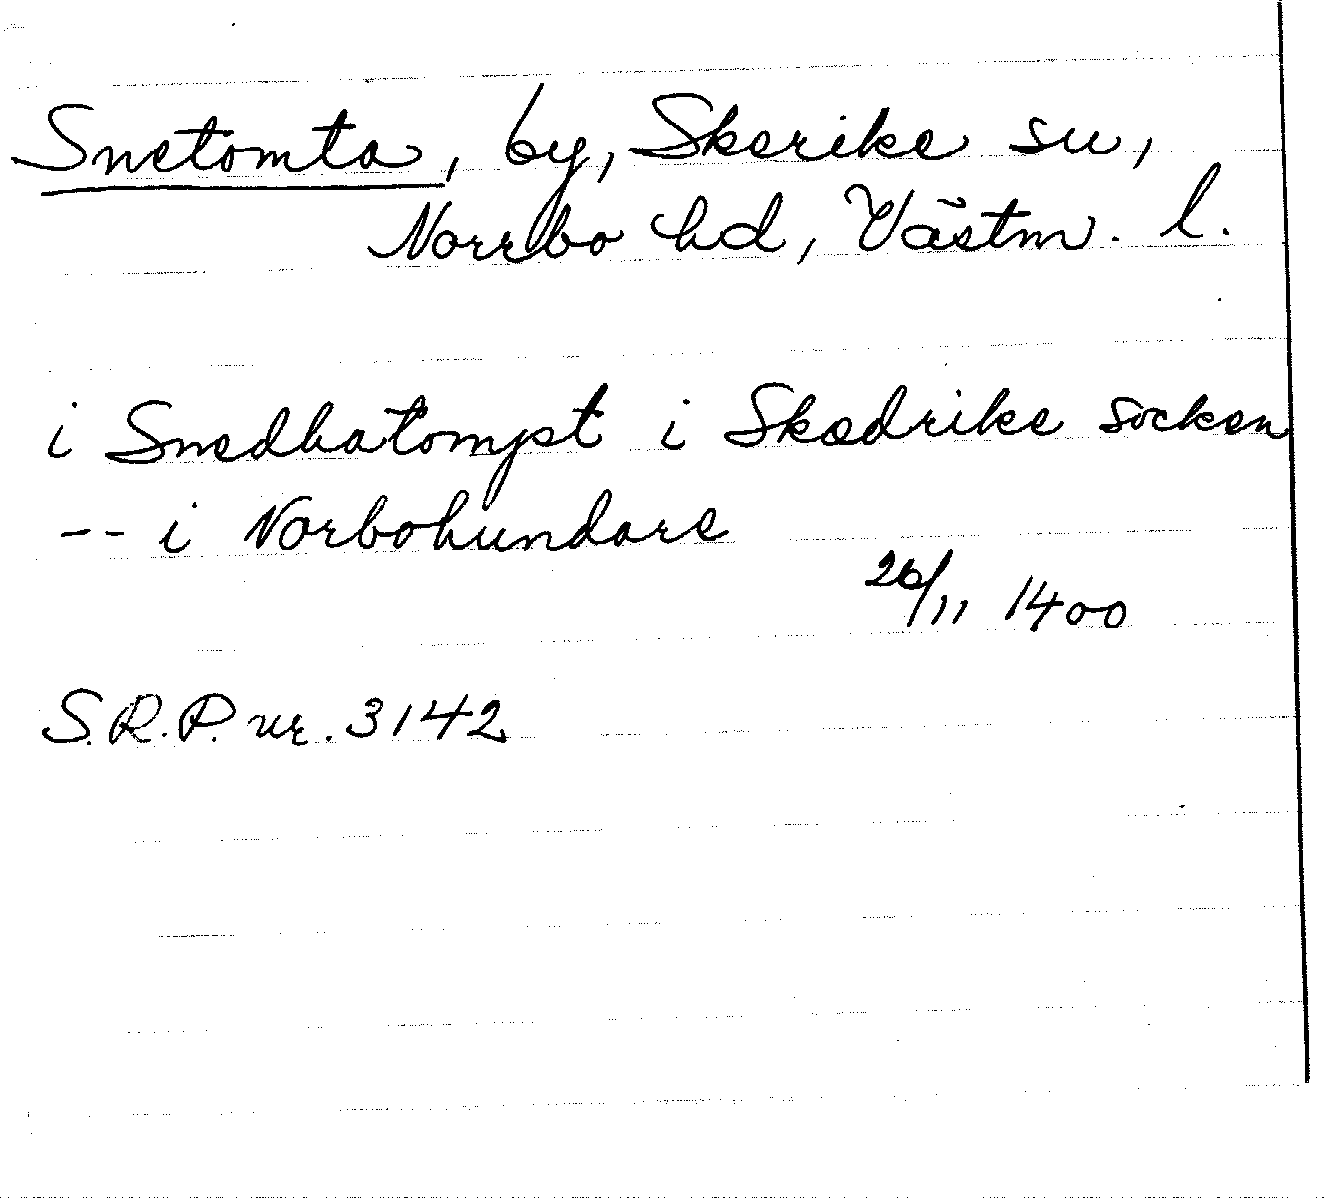 Snetomta, by, Skerike sn,
Norrbo hd, Västm. l.
i Snedhatompt i Skædrike socken
-- i Norbohundare
26/11 1400
S.R.P. nr. 3142